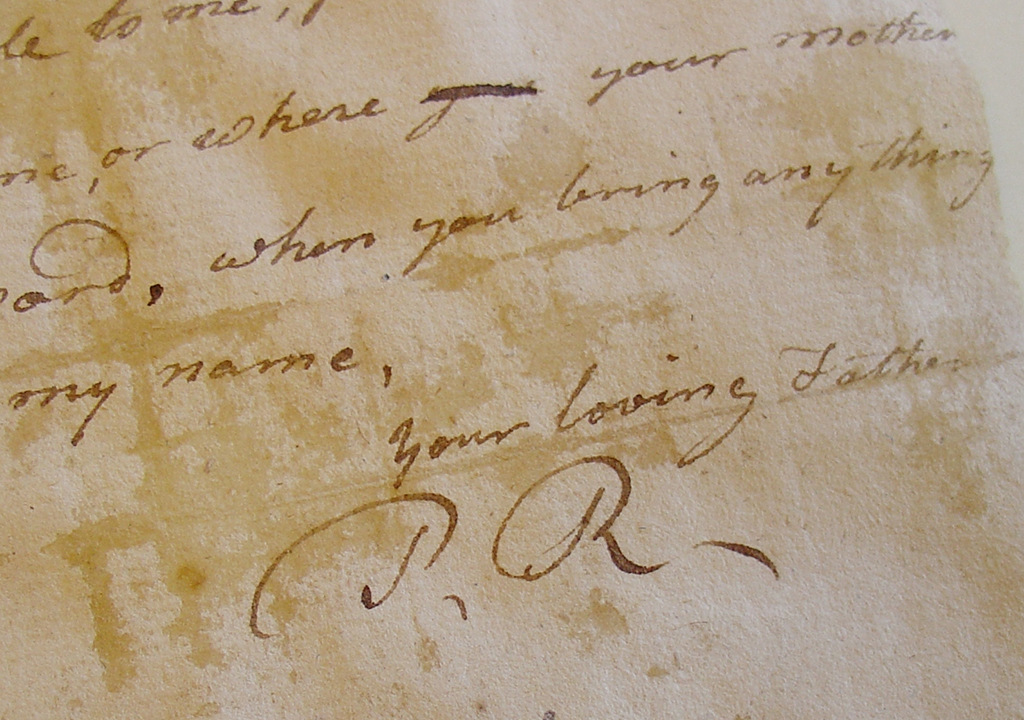 le to me,
me, or where your mother
oard, when you bring anything
my name,
your loving Father
P, R -